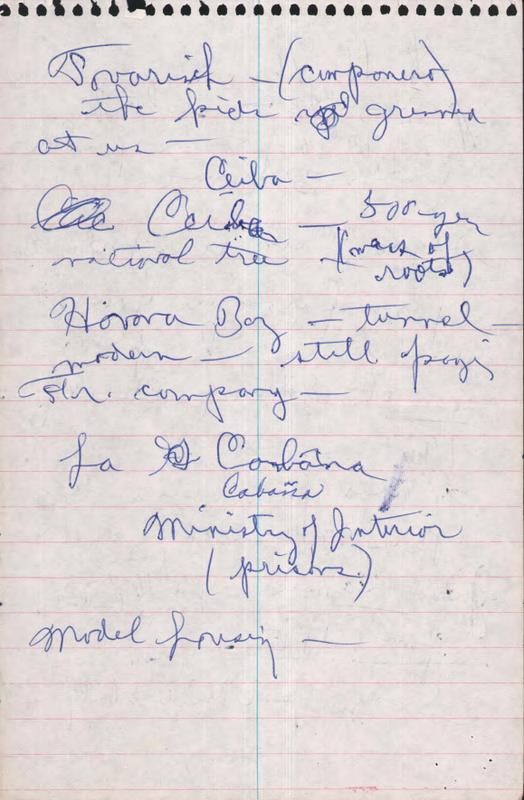 Tovarisch — (companero)
the kids grinned
at us —
Ceiba —
Ceiba — 500 yr
national tree — (mass of
roots)
Havana Bay — tunnel —
modern — still payi
Fr. company —
La Cabãna
Cabaña
Ministry of Interior
(prisons)
Model housing —